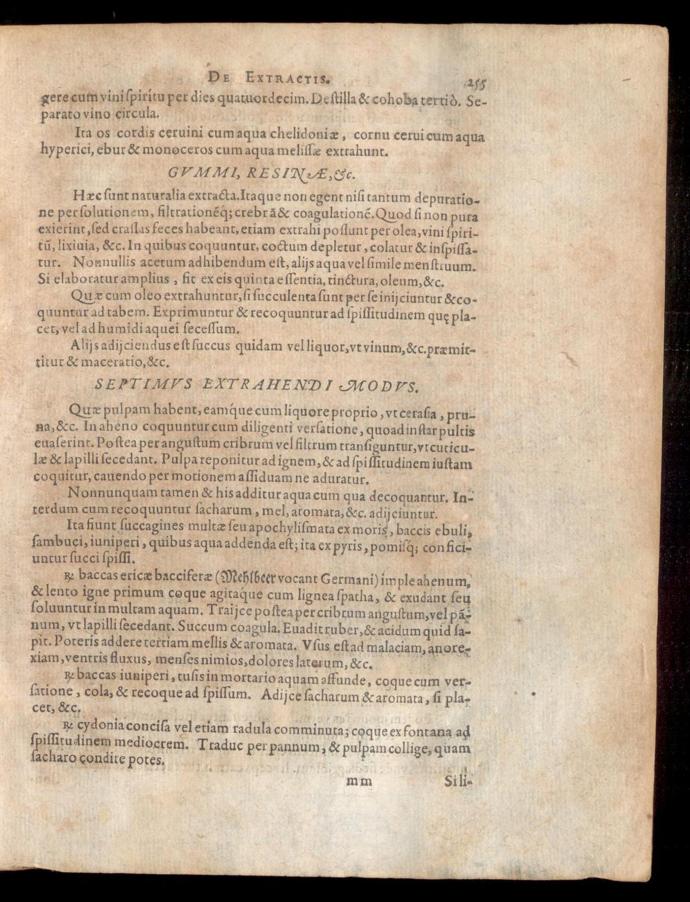 DE EXTRACTIS. 255
gere cum vini ſpiritu per dies quatuordecim. Deſtilla & cohoba tertiò. Se-
parato vino circula.
Ita os cordis ceruini cum aqua chelidoniæ, cornu cerui cum aqua
hyperici, ebur & monoceros cum aqua meliſſæ extrahunt.
GVMMI, RESINÆ, &c.
Hæc ſunt naturalia extracta. Itaque non egent niſi tantum depuratio-
ne per ſolutionem, filtrationẽq; crebrã & coagulationẽ. Quod ſi non pura
exierint, ſed craſſas feces habeant, etiam extrahi poſſunt per olea, vini ſpiri-
tũ, lixiuia, &c. In quibus coquuntur, coctum depletur, colatur & inſpiſſa-
tur. Nonnullis acetum adhibendum eſt, alijs aqua vel ſimile menſtruum.
Si elaboratur amplius, fit ex eis quinta eſſentia, tinctura, oleum, &c.
Quæ cum oleo extrahuntur, ſi ſucculenta ſunt per ſe inijciuntur & co-
quuntur ad tabem. Exprimuntur & recoquuntur ad ſpiſſitudinem quę pla-
cet, vel ad humidi aquei ſeceſſum.
Alijs adijciendus eſt ſuccus quidam vel liquor, vt vinum, &c. præmit-
titur & maceratio, &c.
SEPTIMVS EXTRAHENDI MODVS.
Quæ pulpam habent, eamq́ue cum liquore proprio, vt ceraſia, pru-
na, &c. In aheno coquuntur cum diligenti verſatione, quoad inſtar pultis
euaſerint. Poſtea per anguſtum cribrum vel filtrum tranſiguntur, vt cuticu-
læ & lapilli ſecedant. Pulpa reponitur ad ignem, & ad ſpiſſitudinem iuſtam
coquitur, cauendo per motionem aſſiduam ne aduratur.
Nonnunquam tamen & his additur aqua cum qua decoquantur. In-
terdum cum recoquuntur ſacharum, mel, aromata, &c. adijciuntur.
Ita fiunt ſuccagines multæ ſeu apochyliſmata ex moris, baccis ebuli,
ſambuci, iuniperi, quibus aqua addenda eſt; ita ex pyris, pomiſq́; confici-
untur ſucci ſpiſſi.
℞ baccas ericæ bacciferæ (Mehlbeer vocant Germani) imple ahenum,
& lento igne primum coque agitaque cum lignea ſpatha, & exudant ſeu
ſoluuntur in multam aquam. Traijce poſtea per cribrum anguſtum, vel pã-
num, vt lapilli ſecedant. Succum coagula. Euadit ruber, & acidum quid ſa-
pit. Poteris addere tertiam mellis & aromata. Vſus eſt ad malaciam, anore-
xiam, ventris fluxus, menſes nimios, dolores laterum, &c.
℞ baccas iuniperi, tuſis in mortario aquam affunde, coque cum ver-
ſatione, cola, & recoque ad ſpiſſum. Adijce ſacharum & aromata, ſi pla-
cet, &c.
℞ cydonia conciſa vel etiam radula comminuta; coque ex fontana ad
ſpiſſitudinem mediocrem. Traduc per pannum, & pulpam collige, quam
ſacharo condire potes.
mm Sili-